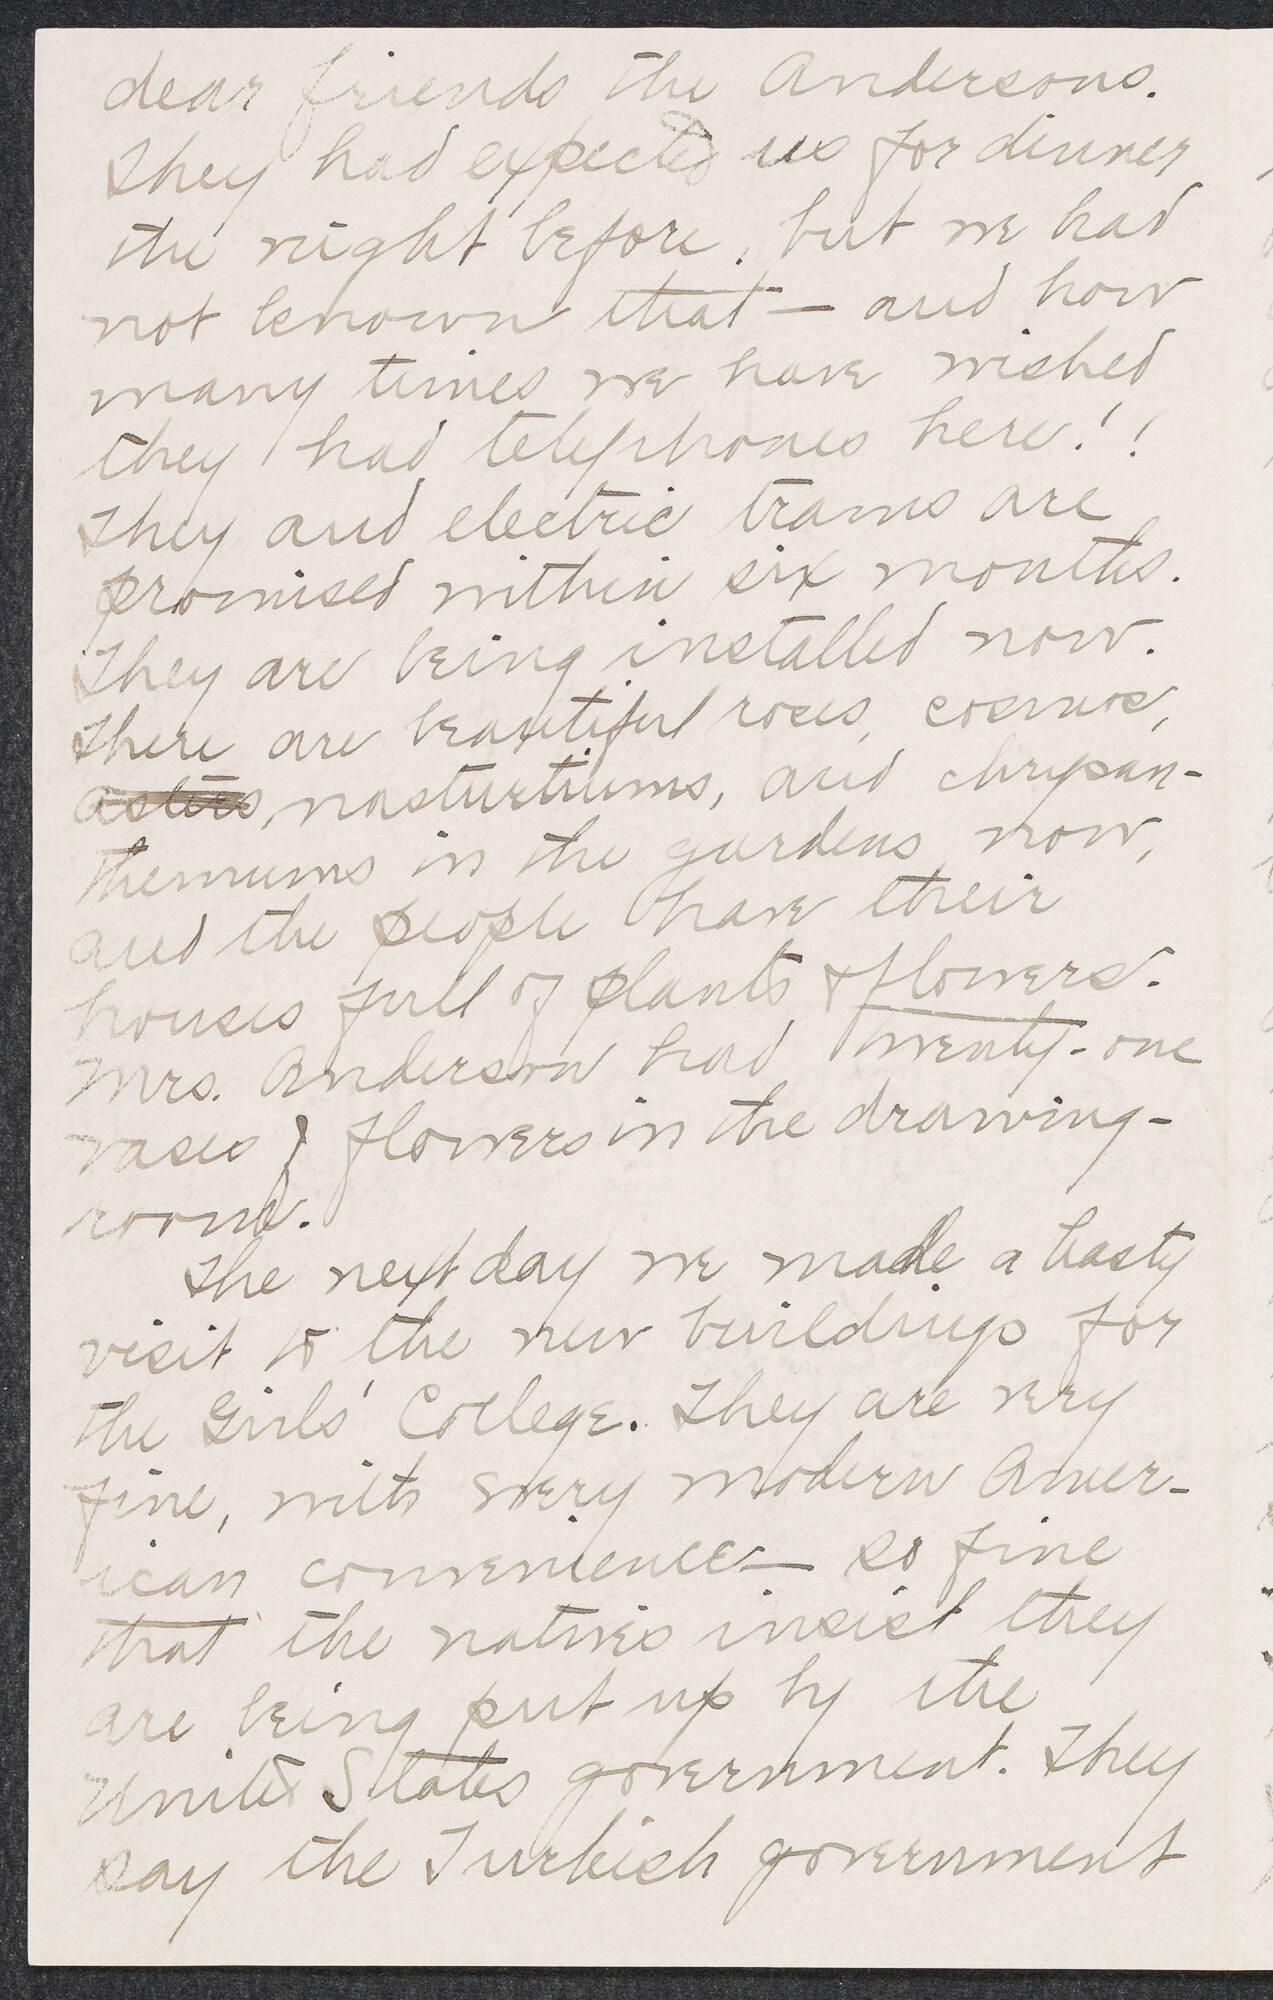 dear friends the Andersons.
They had expected us for dinner
the night before, but we had
not known that — and how
many times we have wished
they had telephones here!!
They and electric trams are
promised within six months.
They are being installed now.
There are beautiful roses, cosmos,
asters, nasturtiums, and chrysan-
themums in the gardens now,
and the people have their
houses full of plants & flowers.
Mrs. Anderson had twenty-one
vases of flowers in the drawing-
room.
The next day we made a hasty
visit to the new buildings for
the Girls' College. They are very
fine, with every modern Amer-
ican convenience — so fine
that the natives insist they
are being put up by the
United States government. They
say the Turkish government